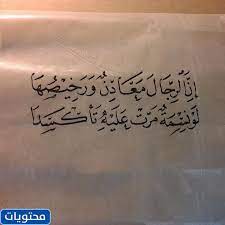 إن الرجال معادن ورخيصها
لو نسمة مرت عليه تأكسدا
محتويات